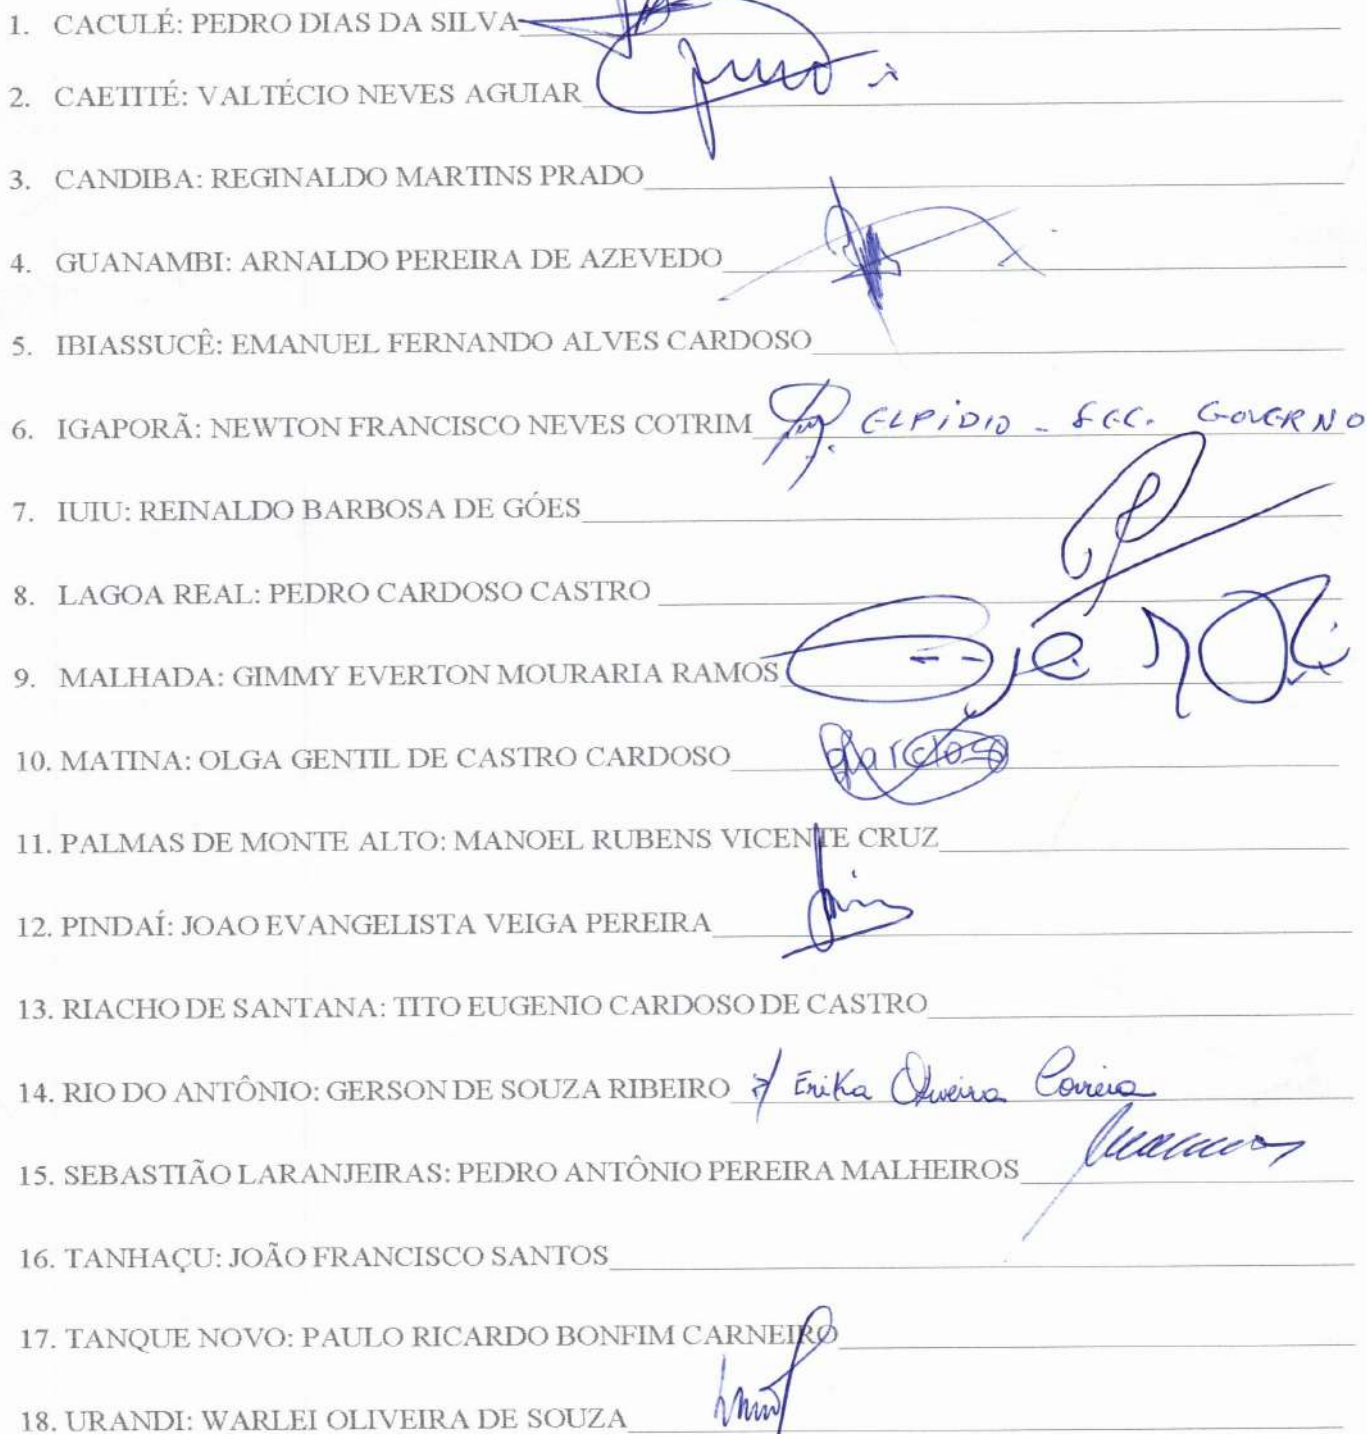 1. CACULÉ: PEDRO DIAS DA SILVA
2. CAETITÉ: VALTÉCIO NEVES AGUIAR
3. CANDIBA: REGINALDO MARTINS PRADO
4. GUANAMBI: ARNALDO PEREIRA DE AZEVEDO
5. IBIASSUCÊ: EMANUEL FERNANDO ALVES CARDOSO
6. IGAPORÃ: NEWTON FRANCISCO NEVES COTRIM ELPIDIO - SEC. GOVERNO
7. IUIU: REINALDO BARBOSA DE GÓES
8. LAGOA REAL: PEDRO CARDOSO CASTRO
9. MALHADA: GIMMY EVERTON MOURARIA RAMOS
10. MATINA: OLGA GENTIL DE CASTRO CARDOSO
11. PALMAS DE MONTE ALTO: MANOEL RUBENS VICENTE CRUZ
12. PINDAÍ: JOAO EVANGELISTA VEIGA PEREIRA
13. RIACHO DE SANTANA: TITO EUGENIO CARDOSO DE CASTRO
14. RIO DO ANTÔNIO: GERSON DE SOUZA RIBEIRO p/ Erika Oliveira Correia
15. SEBASTIÃO LARANJEIRAS: PEDRO ANTÔNIO PEREIRA MALHEIROS
16. TANHAÇU: JOÃO FRANCISCO SANTOS
17. TANQUE NOVO: PAULO RICARDO BONFIM CARNEIRO
18. URANDI: WARLEI OLIVEIRA DE SOUZA